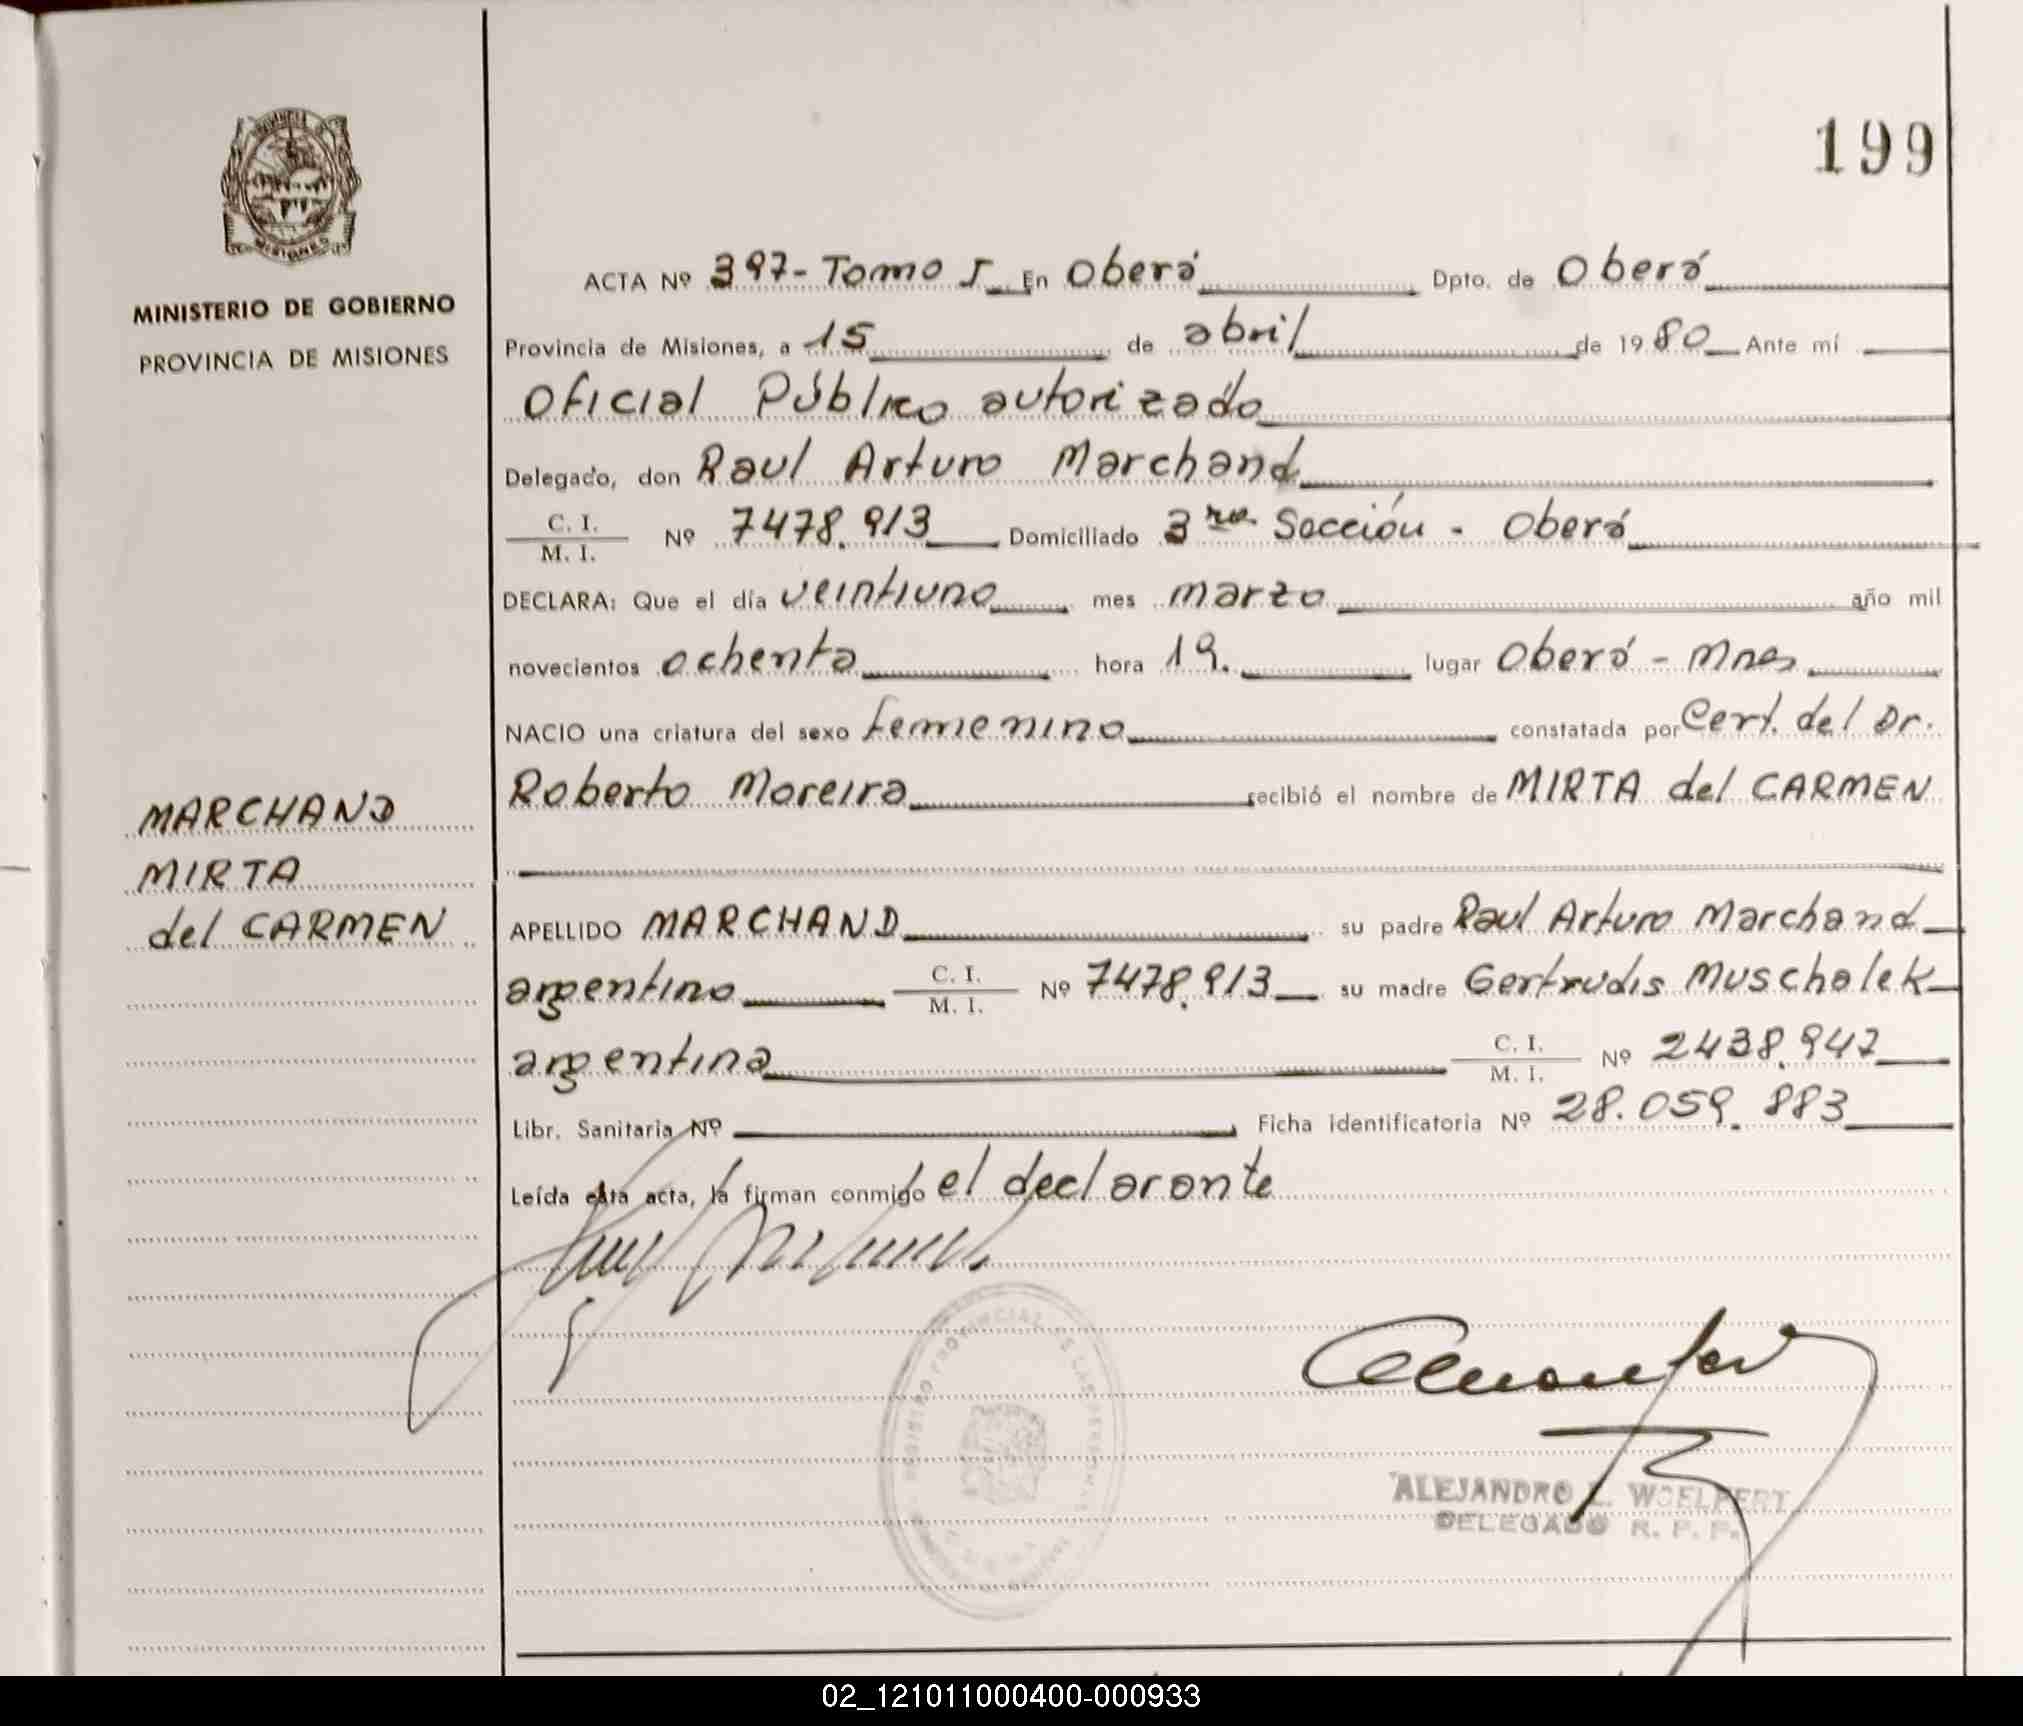 199
MINISTERIO DE GOBIERNO
PROVINCIA DE MISIONES
MARCHAND
MIRTA
del CARMEN
ACTA Nº 397 - Tomo I En Oberá Dpto. de Oberá
Provincia de Misiones, a 15 de abril de 1980 Ante mí
Oficial Público autorizado
Delegado, don Raul Arturo Marchand
C. I. / M. I. Nº 7478.913 Domiciliado 3ra. Sección - Oberá
DECLARA: Que el día veintiuno mes marzo año mil
novecientos ochenta hora 19. lugar Oberá - Mnes
NACIO una criatura del sexo femenino constatada por Cert. del Dr.
Roberto Moreira recibió el nombre de MIRTA del CARMEN
APELLIDO MARCHAND su padre Raul Arturo Marchand
argentino C. I. / M. I. Nº 7478.913 su madre Gertrudis Muschalek
argentina C. I. / M. I. Nº 2438.947
Libr. Sanitaria Nº Ficha identificatoria Nº 28.059.883
Leída esta acta, la firman conmigo el declarante
REGISTRO PROVINCIAL DE LAS PERSONAS
ALEJANDRO L. WOELFERT
DELEGADO R. P. P.
02_121011000400-000933